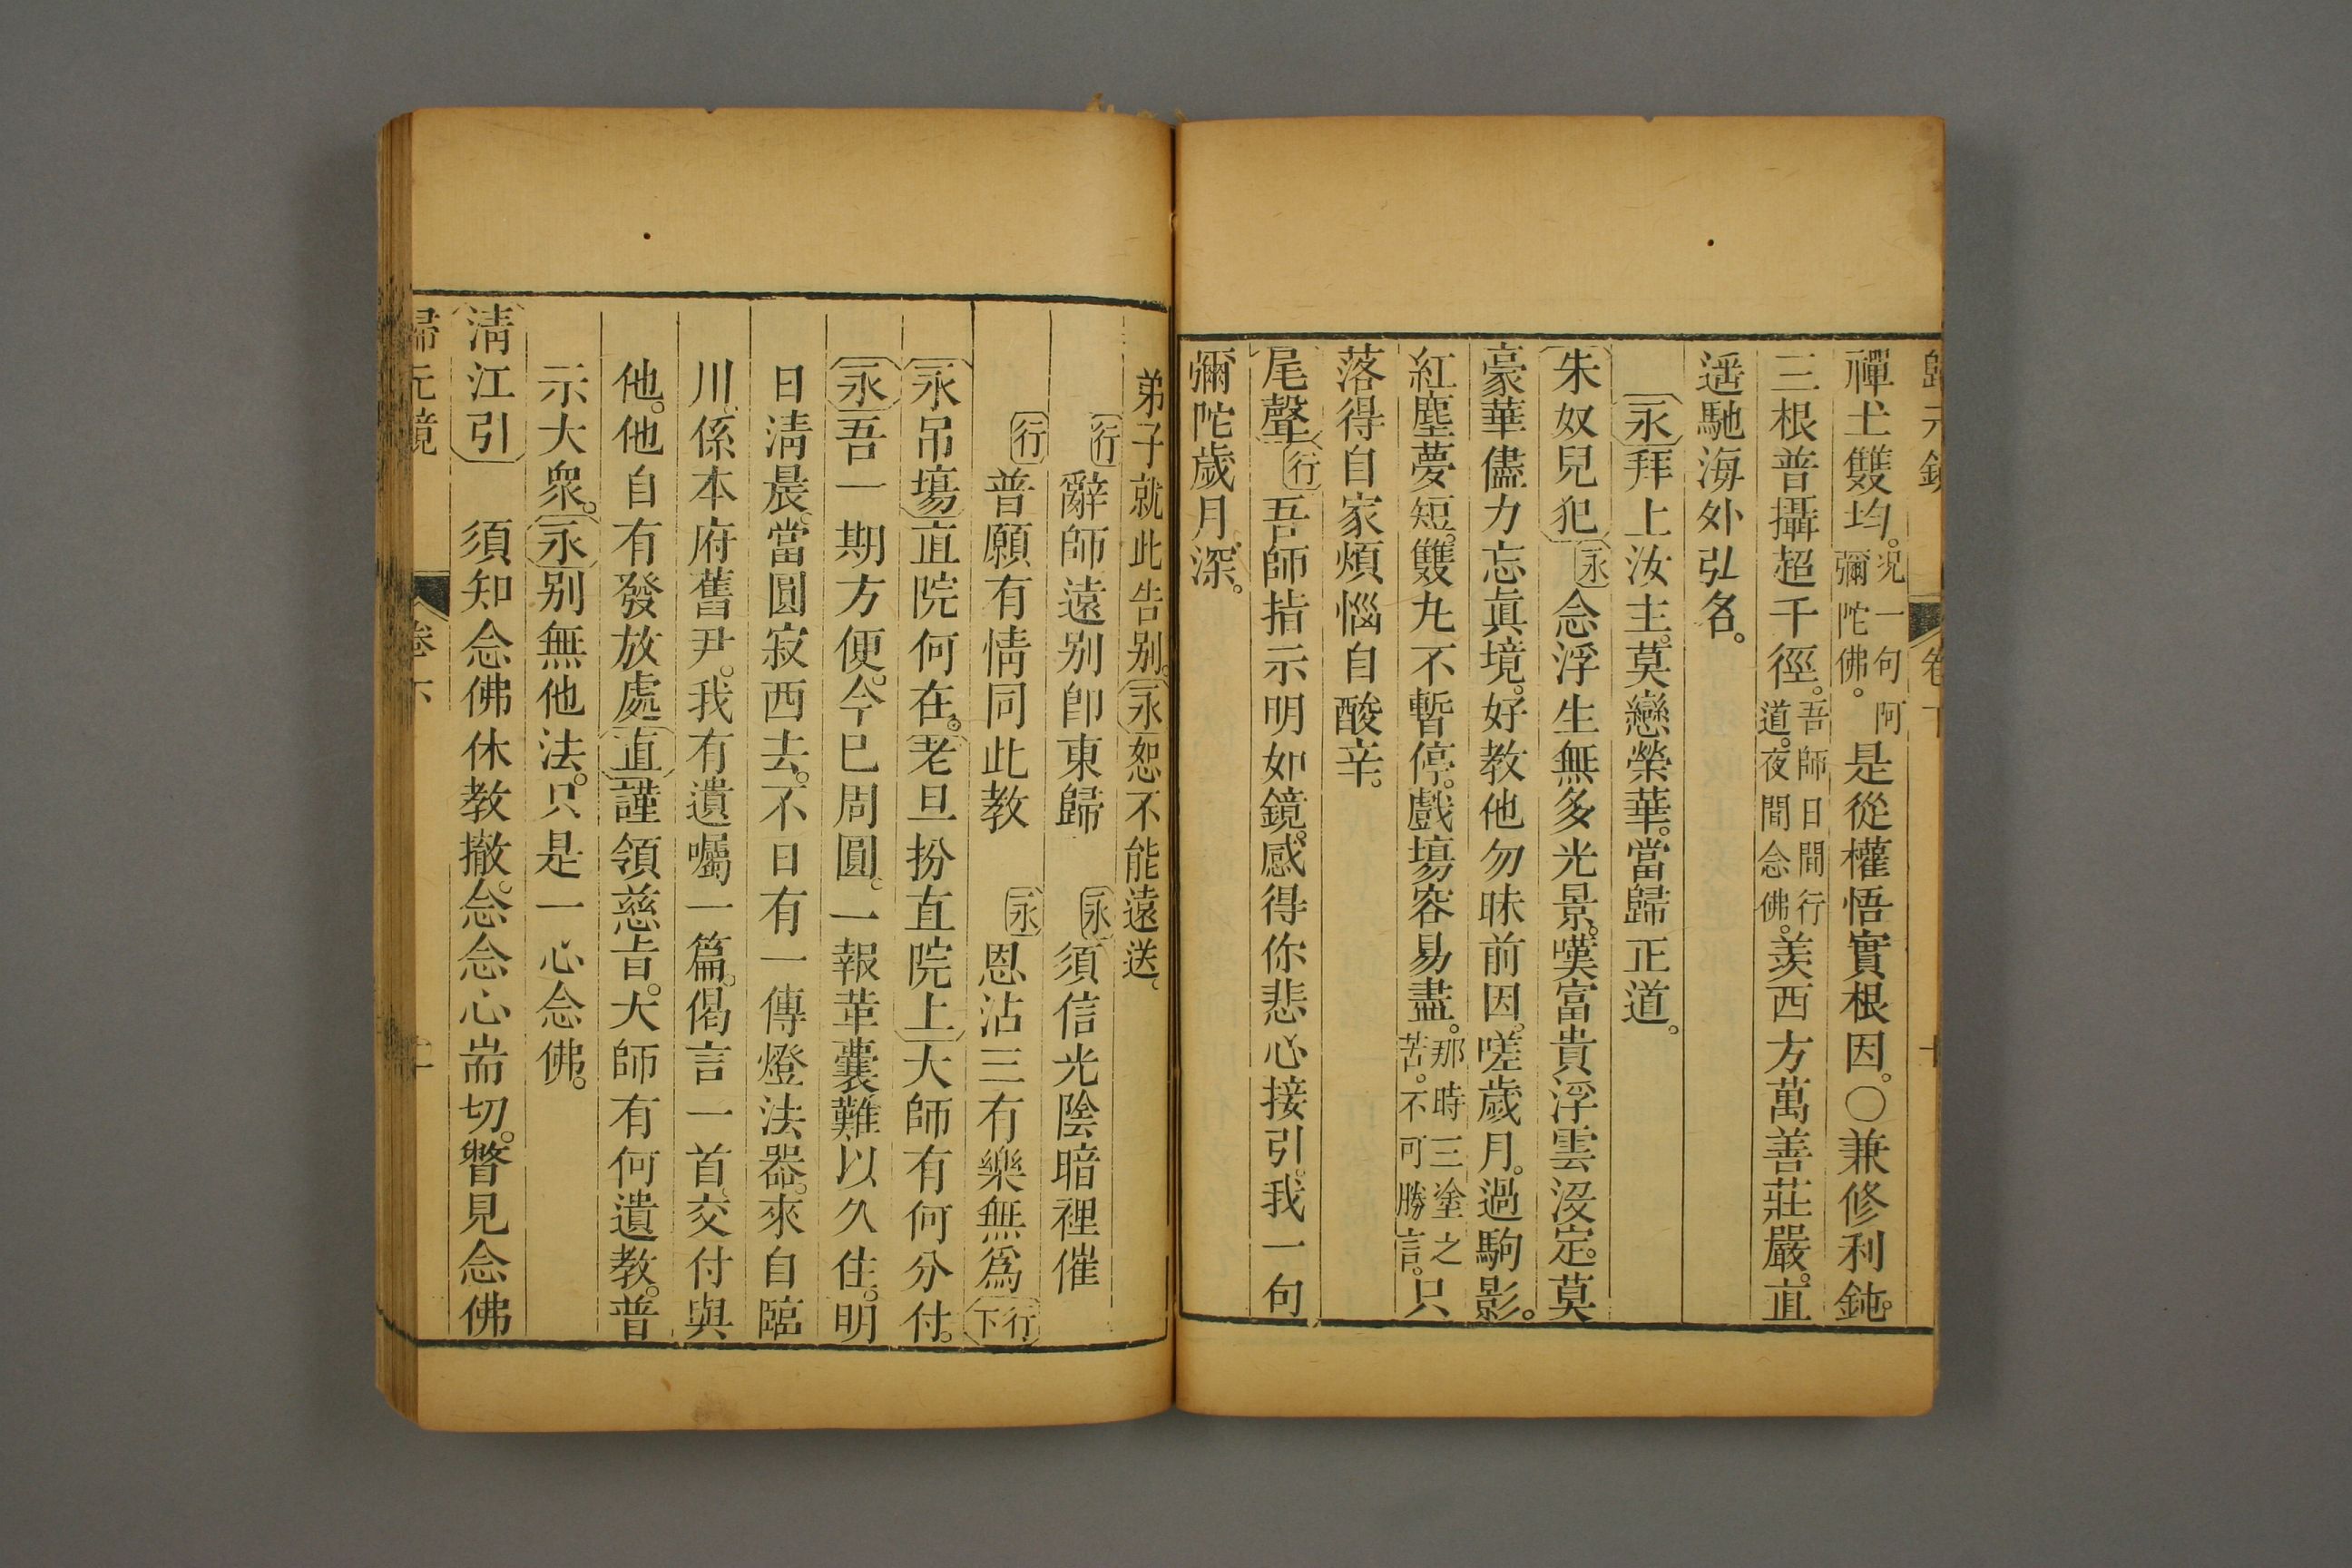 禪土雙均。況一句阿彌陀佛。是從權悟實根因。〇兼修利鈍。
三根普攝超千徑。吾師日間行道。夜間念佛。羨西方萬善莊嚴。直
遥馳海外弘名。
永拜上汝主。莫戀榮華。當歸正道。
朱奴兒犯永念浮生無多光景。嘆富貴浮雲沒定。莫
豪華儘力忘眞境。好教他勿昧前因。嗟歲月。過駒影。
紅塵夢短。雙丸不暫停。戲場容易盡。那時三塗之苦。不可勝言。只
落得自家煩惱自酸辛。
尾聲行吾師指示明如鏡。感得你悲心接引。我一句
彌陀歲月深。
弟子就此告别。永恕不能遠送。
行辭師遠别卽東歸 永須信光陰暗裡催
行普願有情同此教 永恩沾三有樂無爲行下
永吊場直院何在。老旦扮直院上大師有何分付。
永吾一期方便。今已周圓。一報革囊難以久住。明
日淸晨。當圓寂西去。不日有一傳燈法器。來自臨
川、係本府舊尹。我有遺囑一篇。偈言一首、交付與
他。他自有發放處直謹領慈旨。大師有何遺教。普
示大衆。永别無他法。只是一心念佛。
淸江引 須知念佛休教撤。念念心耑切。瞥見念佛
歸元鏡 卷下